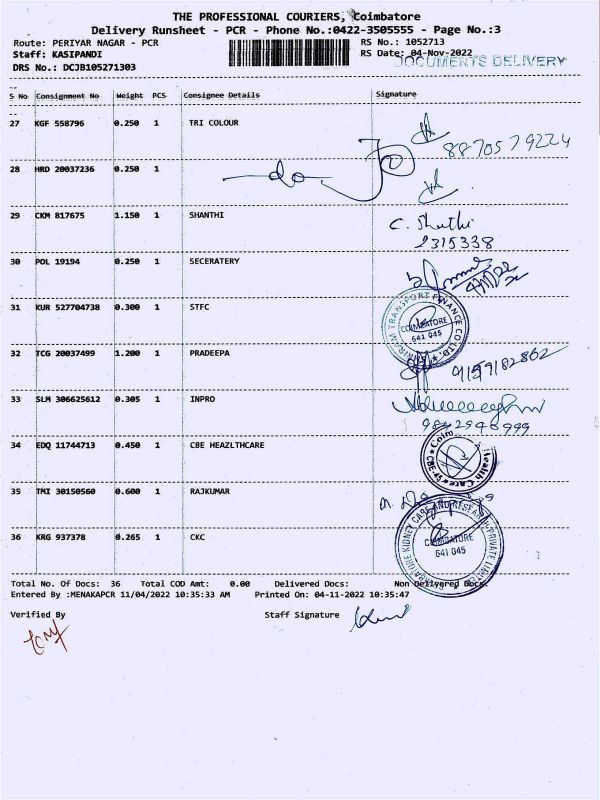 THE PROFESSIONAL COURIERS, Coimbatore
Delivery Runsheet - PCR - Phone No.:0422-3505555 - Page No.:3
Route: PERIYAR NAGAR - PCR RS No.: 1052713
Staff: KASIPANDI RS Date: 04-Nov-2022
DOCUMENTS DELIVERY
DRS No.: DCJB105271303
S No Consignment No Weight PCS Consignee Details Signature
27 KGF 558796 0.250 1 TRI COLOUR
8870579224
28 HRD 20037236 0.250 1 do
29 CKM 817675 1.150 1 SHANTHI C. Shathi
2315338
30 POL 19194 0.250 1 SECERATERY
31 KUR 527704738 0.300 1 STFC
SHRIRAM TRANSPORT FINANCE CO LTD.
COIMBATORE
641 045
32 TCG 20037499 1.200 1 PRADEEPA 9159182862
33 SLM 306625612 0.305 1 INPRO
9842946999
34 EDQ 11744713 0.450 1 CBE HEAZLTHCARE
Coim Health Care CBE-45
35 TMI 30150560 0.600 1 RAJKUMAR
36 KRG 937378 0.265 1 CKC
COIMBATORE KIDNEY CARE AND RESEARCH PRIVATE LIMITED
COIMBATORE
641 045
Total No. Of Docs: 36 Total COD Amt: 0.00 Delivered Docs: Non Delivered Docs:
Entered By :MENAKAPCR 11/04/2022 10:35:33 AM Printed On: 04-11-2022 10:35:47
Verified By Staff Signature